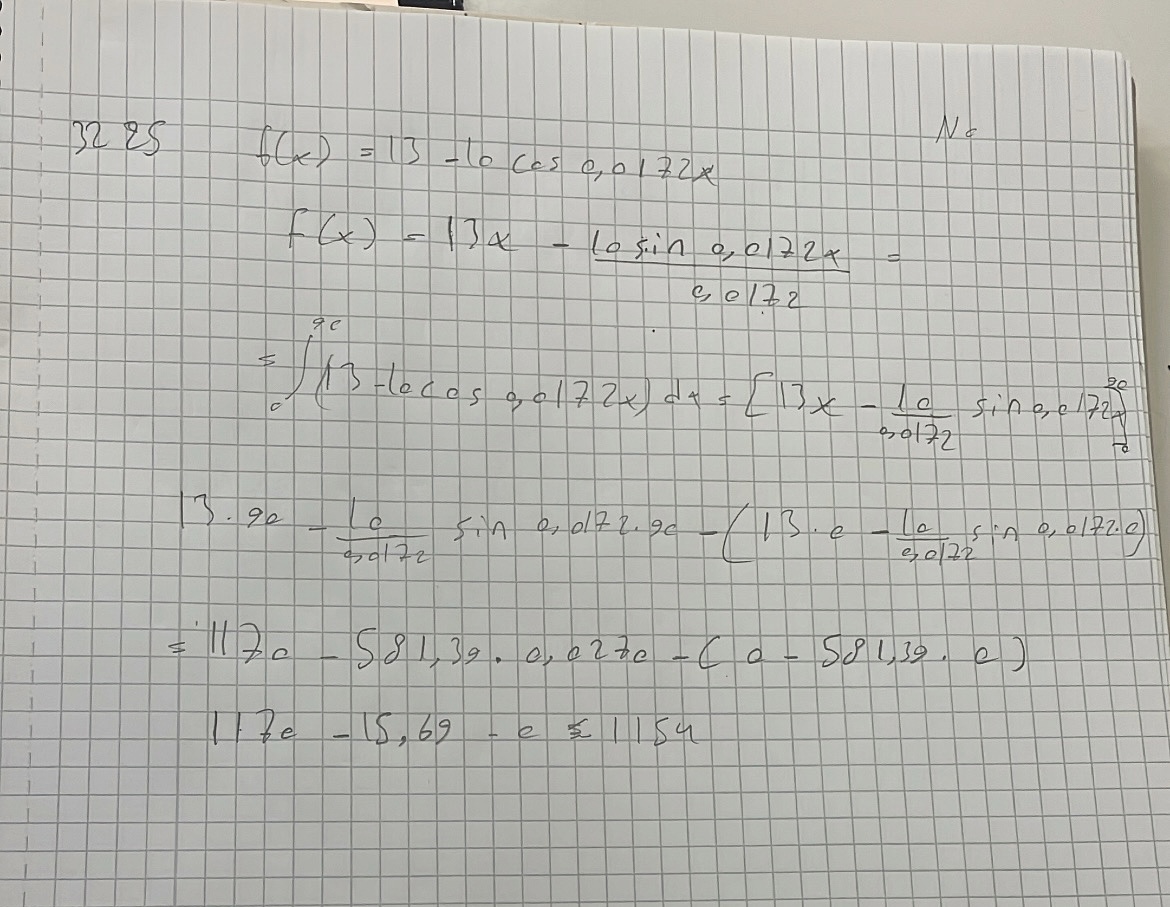 3225 f(x) = 13 - 10 cos 0,0172x
F(x) = 13x - 10 sin 0,0172x / 0,0172 =
= ∫₀⁹⁰ (13 - 10 cos 0,0172x) dx = [13x - 10/0,0172 sin 0,0172x]₀⁹⁰
13·90 - 10/0,0172 sin 0,0172·90 - (13·0 - 10/0,0172 sin 0,0172·0)
= 1170 - 581,39·0,0270 - (0 - 581,39·0)
1170 - 15,69 - 0 = 1154